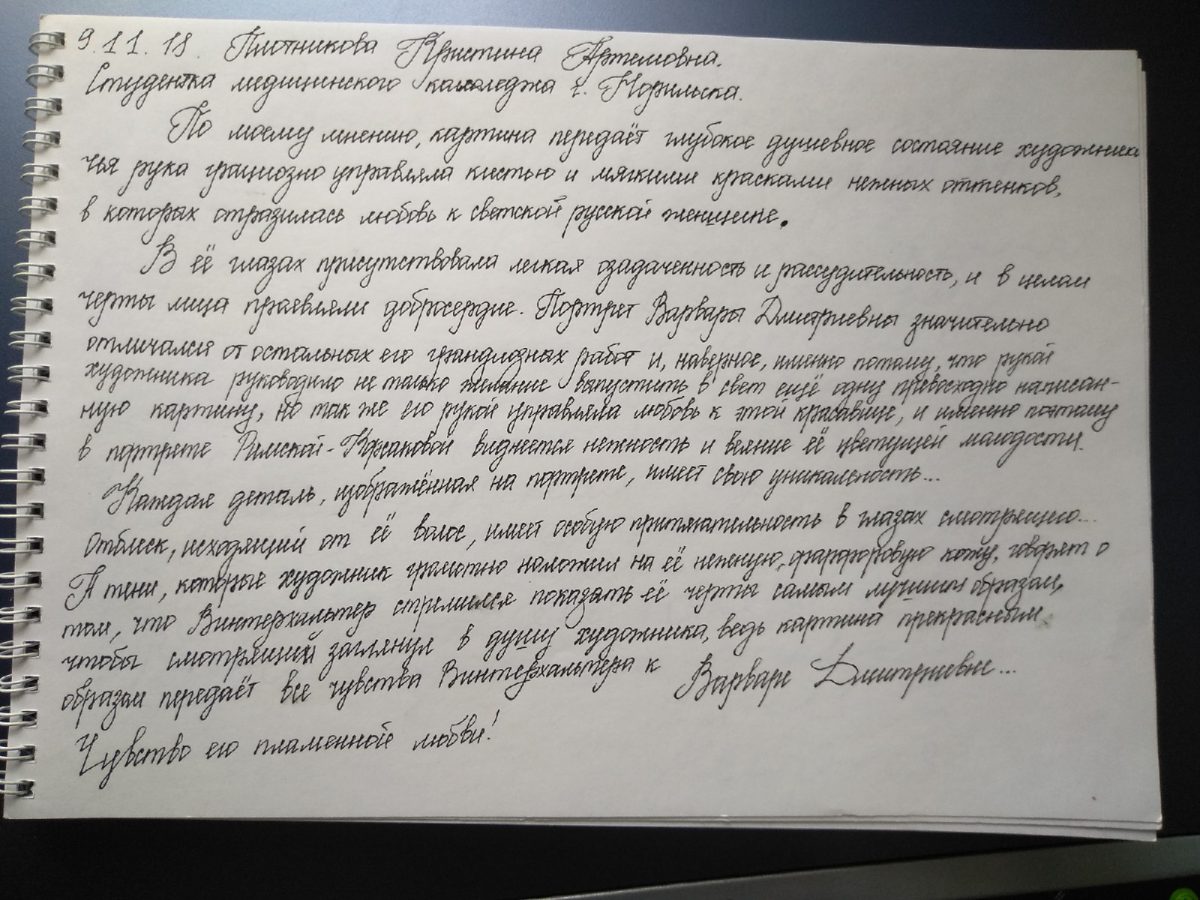 9.11.18. Плотникова Кристина Артемовна.
Студентка медицинского колледжа г. Норильска.
По моему мнению, картина передаёт глубокое душевное состояние художника
чья рука грациозно управляла кистью и мягкими красками нежных оттенков,
в которых отразилась любовь к светской русской женщине.
В её глазах присутствовала легкая озадаченность и рассудительность, и в целом
черты лица проявляли добросердие. Портрет Варвары Дмитриевны значительно
отличался от остальных его грандиозных работ и, наверное, именно потому, что рукой
художника руководило не только желание выпустить в свет ещё одну превосходно написан-
ную картину, но так же его рукой управляла любовь к этой красавице, и именно поэтому
в портрете Римской-Корсаковой виднеется нежность и веяние её цветущей молодости.
Каждая деталь, изображённая на портрете, имеет свою уникальность...
Отблеск, исходящий от её волос, имеет особую притягательность в глазах смотрящего...
А тени, которые художник грамотно наложил на её нежную, фарфоровую кожу, говорят о
том, что Винтерхальтер стремился показать её черты самым лучшим образом,
чтобы смотрящий заглянул в душу художника, ведь картина прекрасным
образом передаёт все чувства Винтерхальтера к Варваре Дмитриевне...
Чувство его пламенной любви!